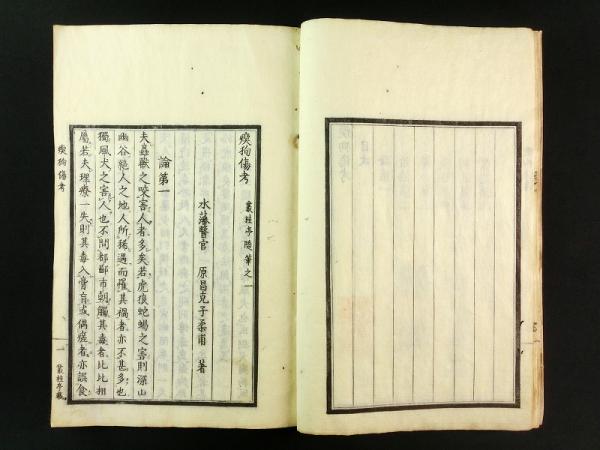 瘈狗傷考
叢桂亭隨筆之一
水藩醫官 原昌克子柔甫 著
論第一
夫蟲獸之咬害人者多矣若虎狼蛇蝎之害則深山
幽谷絕人之地人所稀遇而罹其禍者亦不甚多也
獨風犬之害人也不問都鄙市朝觸其毒者比比相
屬若夫理療一失則其毒入膏肓或偶瘥者亦誤食
瘈狗傷考
一
叢桂亭藏